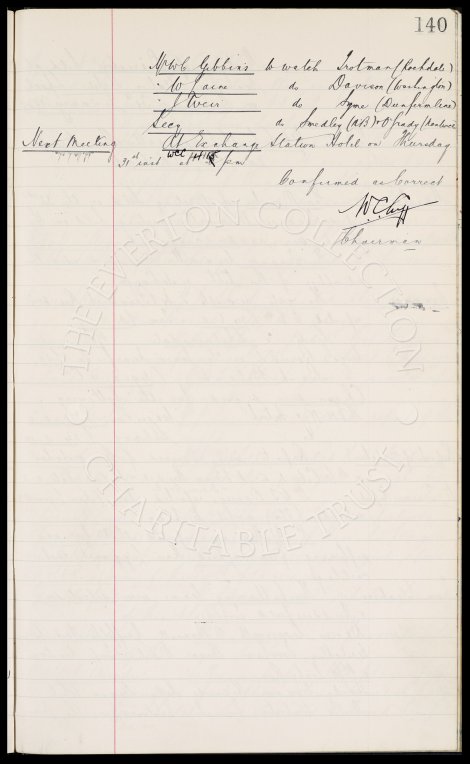 140
Mr W C Gibbins to watch Trotman (Rochdale)
" W Faire do Davison (Washington)
" J Weir do Syme (Dunfermline)
Secy do Smedley (do) & O'Grady (
Next Meeting At Exchange Station Hotel on Thursday
31st inst WCC at pm
Confirmed as Correct
W. C. Cuff
Chairman
THE EVERTON COLLECTION
CHARITABLE TRUST